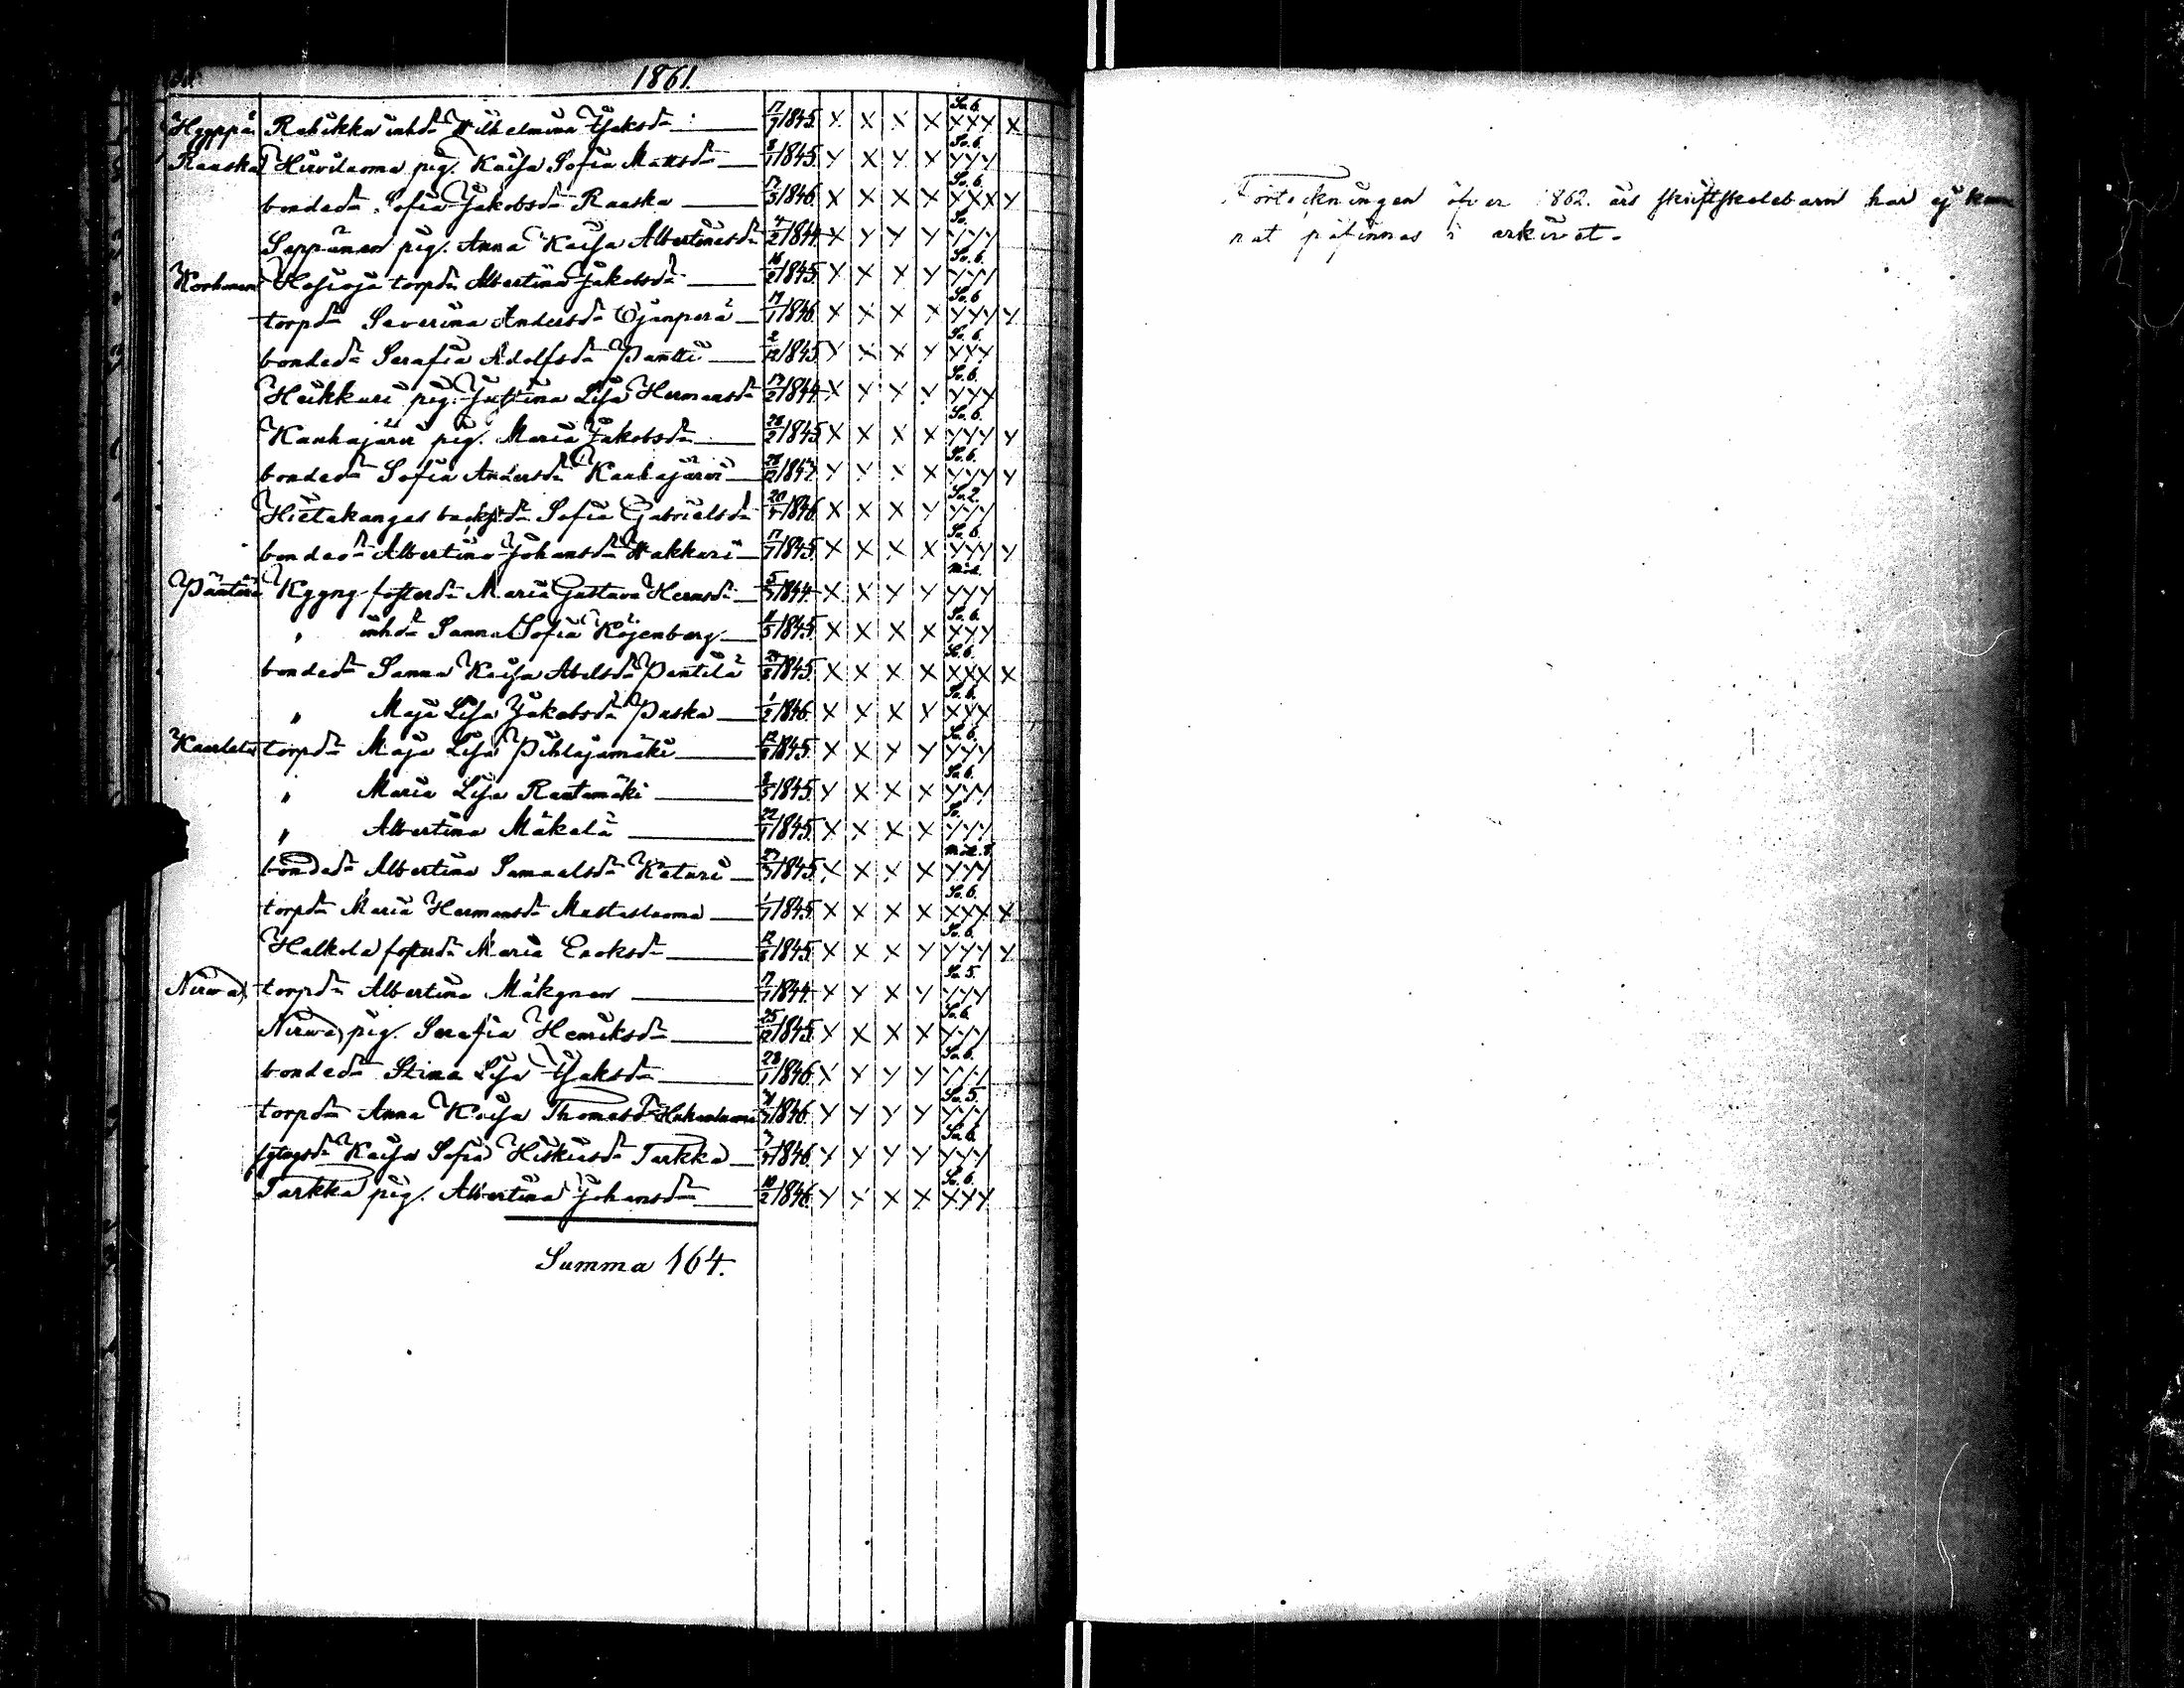 1861.
Hyyppä Rahikka inhd:r Wilhelmina Isaksdr 17/7 1845. X X X X Sv. 6. XXX X
Raaska Hirvilaoma pig. Kaisa Sofia Mattsdr 8/1 1845. X X X X Sv. 6. XXX
bondedr Sofia Jakobsdr Raaska 17/3 1846. X X X X Sv. 6. XXX X
Seppänen pig. Anna Kaisa Albertinasdr 4/2 1844. X X X X Sv. XXX
Korhonen Hojioja torpdr Albertina Jakobsdr 16/2 1845. X X X X Sv. 6. XXX
torpdr Severina Andersdr Ojanperä 19/1 1846. X X X X Sv. 6 XXX X
bondedr Serafia Adolfsdr Pantti 2/12 1845. X X X X Sv. 6. XXX
Heikkuri pig. Justina Lisa Hermansdr 17/2 1844. X X X X Sv. 6. XXX
Kauhajärvi pig. Maria Jakobsdr 28/2 1845 X X X X Sv. 6. XXX X
bondedr Sofia Andersdr Kauhajärvi 28/12 1844. X X X X Sv. 6. XXX X
Hietakangas backstdr Sofia Gabrielsdr 20/ 1846. X X X X Sv. 2. XXX
bondedr Albertina Johansdr Wakkuri 17/7 1845. X X X X Sv. 6. XXX X
Päntäne Kyyny fosterdr Maria Gustava Hermsdr 5/3 1844. X X X X XXX
" inhdr Sanna Sofia Köjenberg 11/5 1845. X X X X Sv. 6. XXX
bondedr Sanna Kaisa Abelsdr Pentilä 24/2 1845. X X X X Sv. 6. XXX X
" Maja Lisa Jakobsdr Puska 1/2 1846. X X X X Sv. 6. XXX
torpdr Maja Lisa Pihlajamäki 12/ 1845. X X X X Sv. 6. XXX
" Maria Lisa Rautamäki 8/3 1845. X X X X Sv. 6. XXX
" Albertina Mäkelä 22/1 1845. X X X X Sv. XXX
bondedr Albertina Samuelsdr Keturi 27/3 1845. X X X X XXX
torpdr Maria Hermansdr Mustaslaoma 1/7 1845. X X X X Sv. 6. XXX X
Halkola fosterdr Maria Enoksdr 12/ 1845. X X X X Sv. 6. XXX X
Nirwa torpdr Albertina Mäkynen 17/7 1844. X X X X Sv. 5. XXX
Nirwa pig. Serafia Henriksdr 25/12 1845. X X X X Sv. 6. XXX
bondedr Stina Lisa Isaksdr 28/1 1846. X X X X Sv. 6. XXX
torpdr Anna Kaisa Thomasdr 1846. X X X X Sv. 5. XXX
Kaisa Sofia Hiskiasdr Tarkka 1846. X X X X Sv. 6. XXX
Tarkka pig. Albertina Johansdr 10/2 1846. X X X X Sv. 6. XXX
Summa 164.
Förteckningen öfver 1862. års skriftskolebarn har ej kun
nat påfinnas i arkivet.